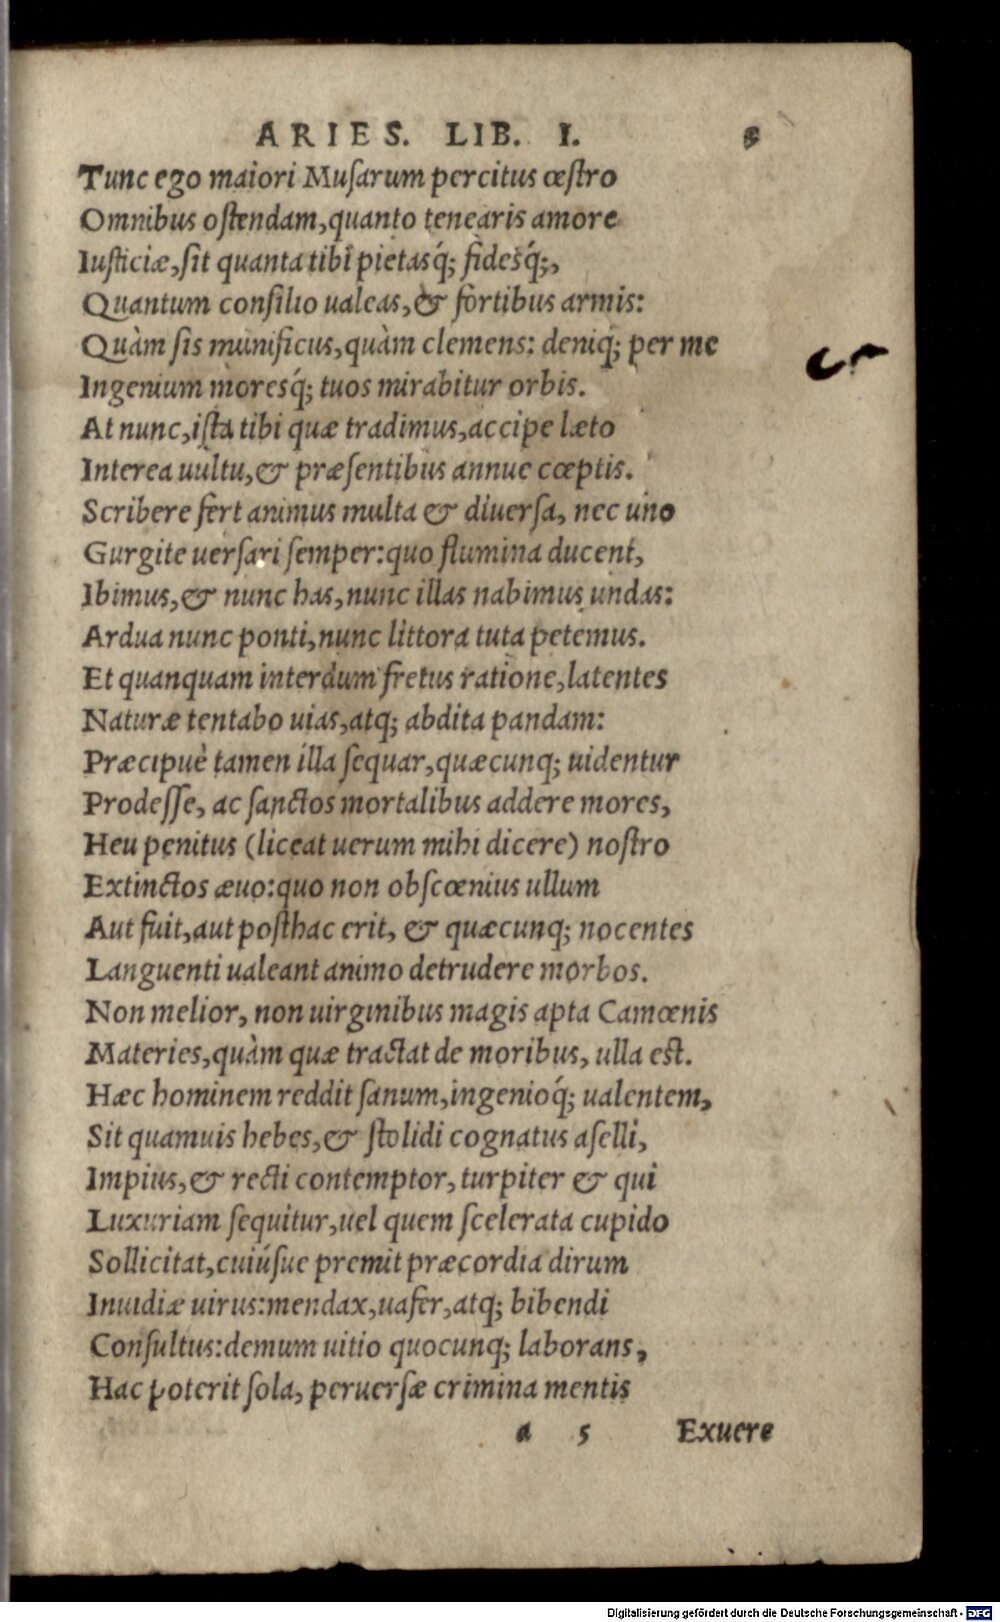 ARIES. LIB. I. 3
Tunc ego maiori Muſarum percitus œſtro
Omnibus oſtendam, quanto tenearis amore
Iuſticiæ, ſit quanta tibi pietasq́; fidesq́;,
Quantum conſilio ualeas, & fortibus armis:
Quàm ſis munificus, quàm clemens: deniq́; per me
Ingenium moresq́; tuos mirabitur orbis.
At nunc, iſta tibi quæ tradimus, accipe læto
Interea uultu, & præſentibus annue cœptis.
Scribere fert animus multa & diuerſa, nec uno
Gurgite uerſari ſemper: quo flumina ducent,
Ibimus, & nunc has, nunc illas nabimus undas:
Ardua nunc ponti, nunc littora tuta petemus.
Et quanquam interdum fretus ratione, latentes
Naturæ tentabo uias, atq; abdita pandam:
Præcipuè tamen illa ſequar, quæcunq; uidentur
Prodeſſe, ac ſanctos mortalibus addere mores,
Heu penitus (liceat uerum mihi dicere) noſtro
Extinctos æuo: quo non obſcœnius ullum
Aut fuit, aut poſthac erit, & quæcunq; nocentes
Languenti ualeant animo detrudere morbos.
Non melior, non uirginibus magis apta Camœnis
Materies, quàm quæ tractat de moribus, ulla eſt.
Hæc hominem reddit ſanum, ingenioq́; ualentem,
Sit quamuis hebes, & ſtolidi cognatus aſelli,
Impius, & recti contemptor, turpiter & qui
Luxuriam ſequitur, uel quem ſcelerata cupido
Sollicitat, cuiúſue premit præcordia dirum
Inuidiæ uirus: mendax, uafer, atq; bibendi
Conſultus: demum uitio quocunq; laborans,
Hac poterit ſola, peruerſæ crimina mentis
a 5 Exuere
Digitalisierung gefördert durch die Deutsche Forschungsgemeinschaft - DFG